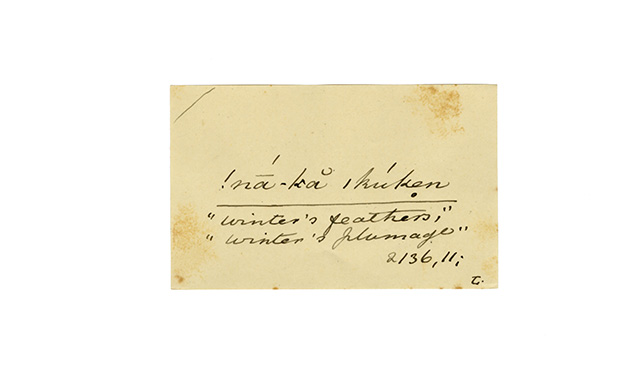 !nā́-kå |kúkẹn
"winter's feathers;"
"winter's plumage"
2136,11;
L.